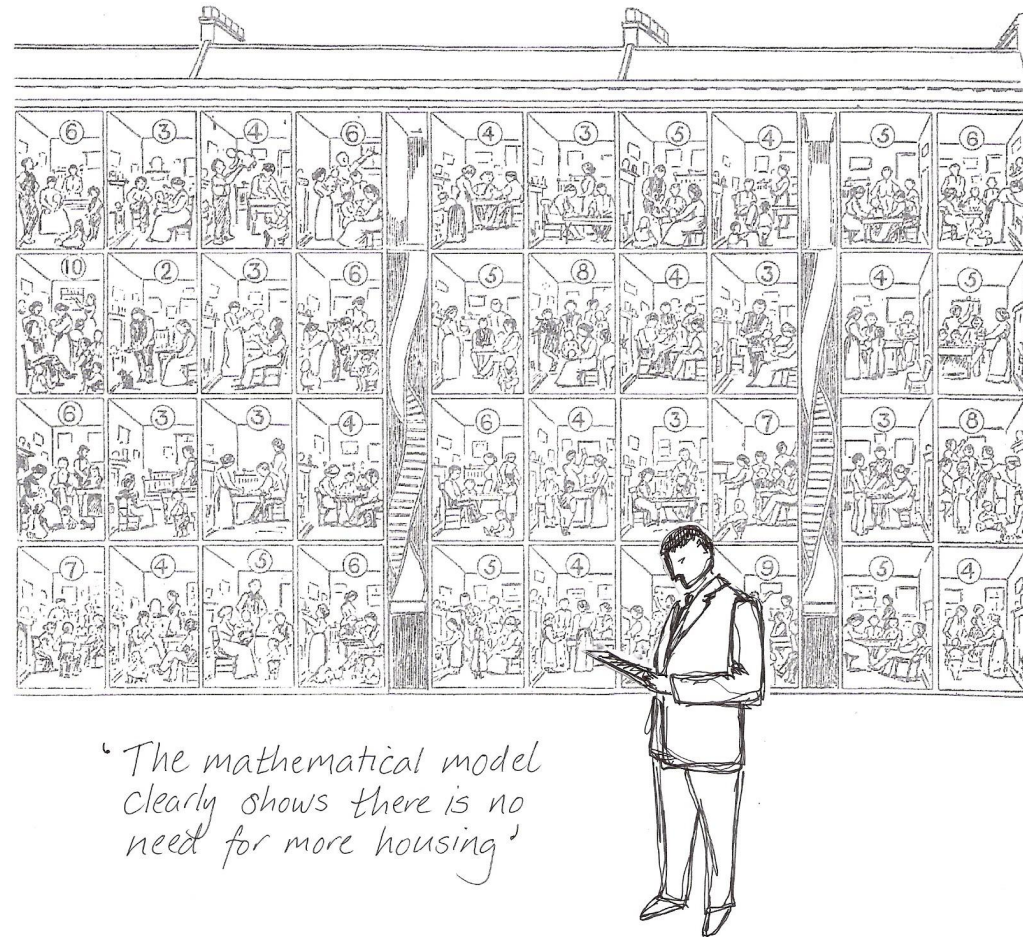 6 3 4 6 4 3 5 4 5 6
10 2 3 6 5 8 4 3 4 5
6 3 3 4 6 4 3 7 3 8
7 4 5 6 5 4 9 5 4
'The mathematical model
clearly shows there is no
need for more housing'